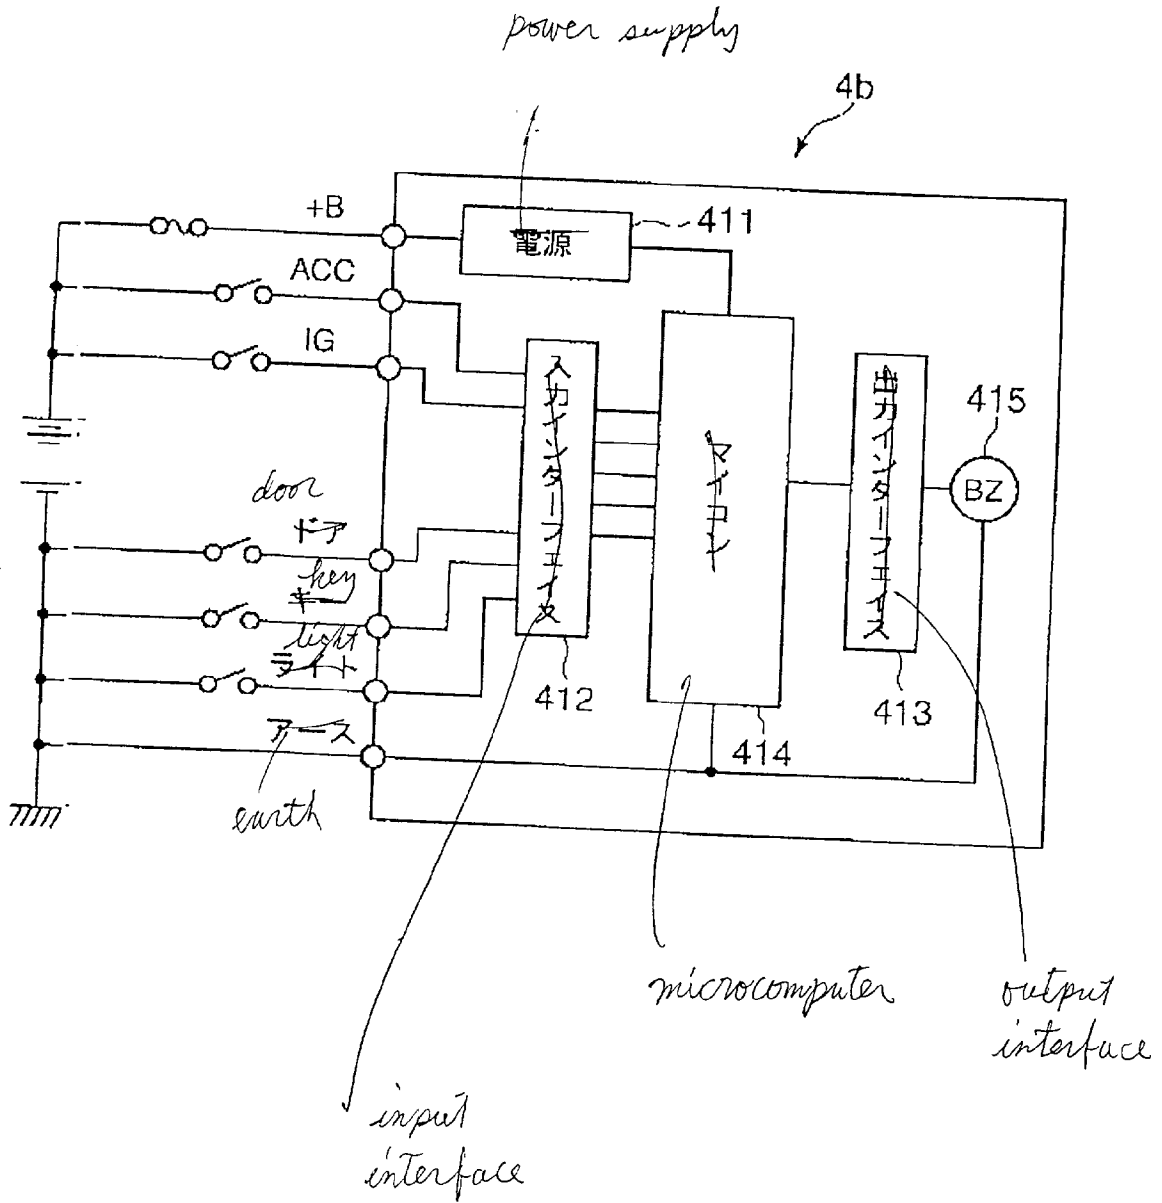 power supply
4b
+B
電源
411
ACC
IG
入力インターフェイス
マイコン
出力インターフェイス
415
BZ
door
ドア
key
キー
light
ライト
アース
earth
412
414
413
microcomputer
output
interface
input
interface